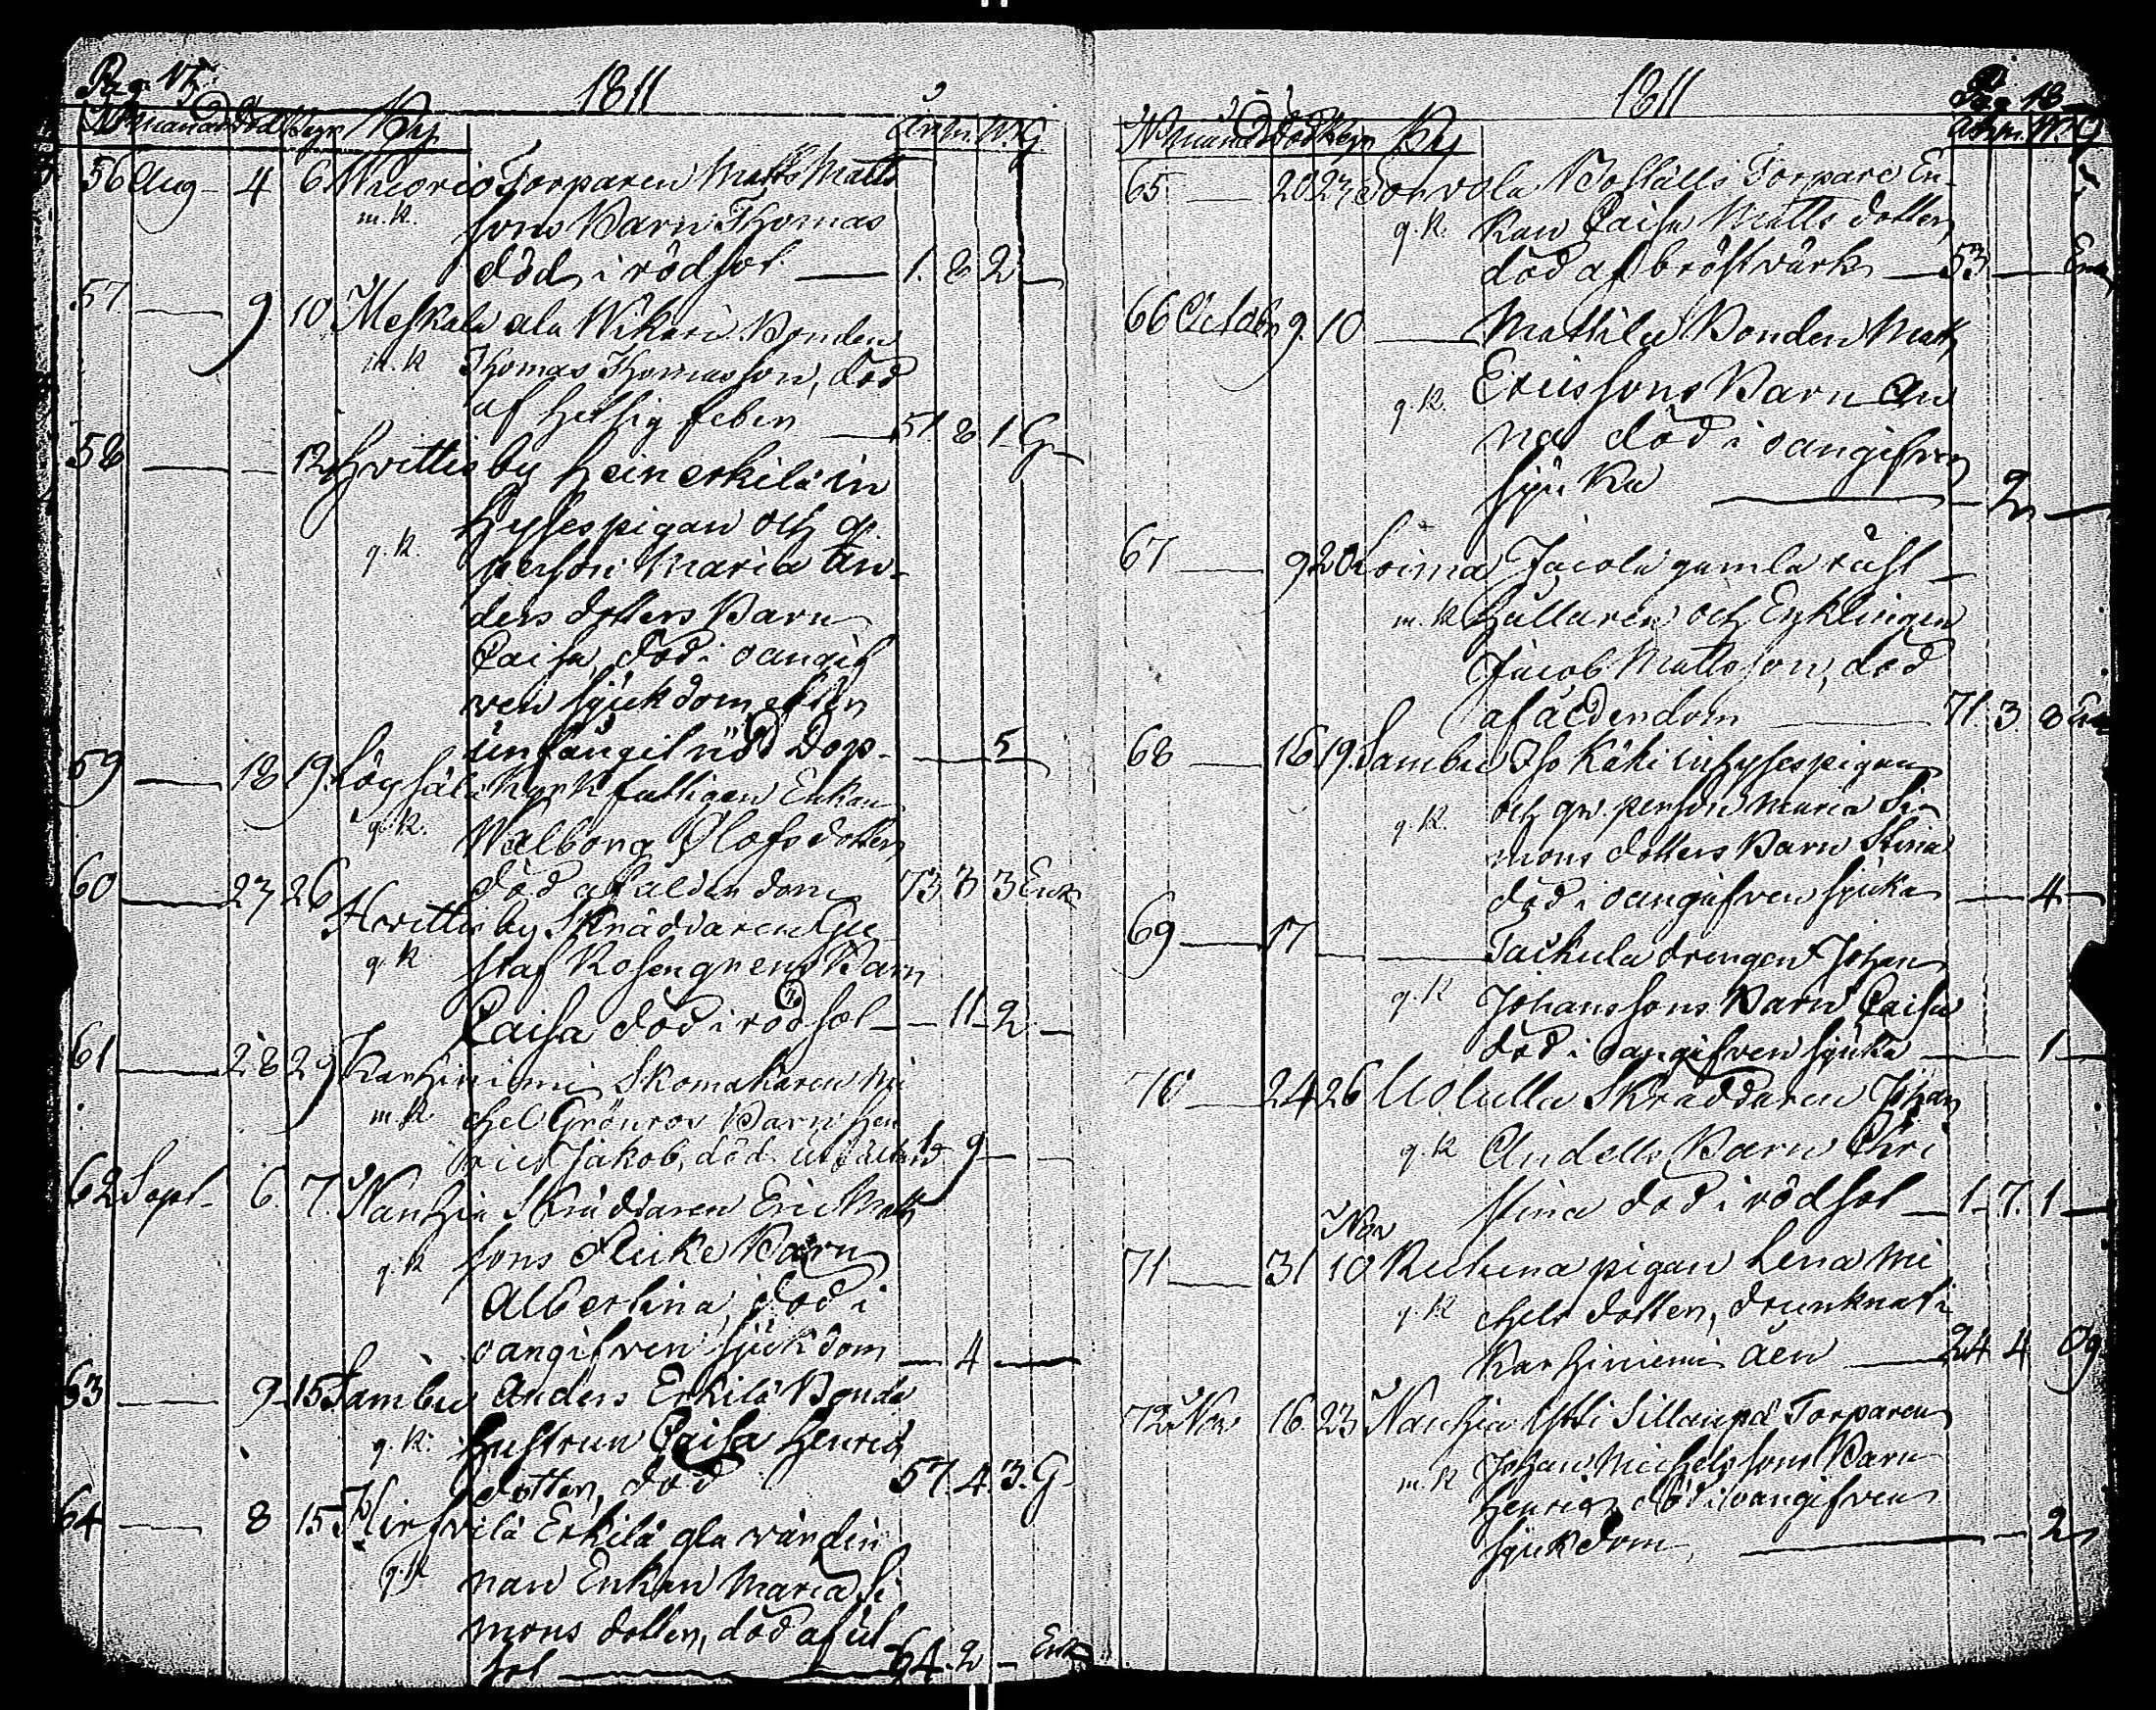 Pag. 17. 1811
N Månad Död Begr. By År M. W. G
56 Aug — 4 6 Wuorio Torparen Matts Matts
m.k. sons Barn Thomas
död i rödsot — 1. 8 2 —
57 — 9 10 Meskala ala Wikari Bonden
m.k Thomas Thomasson, död
af hetsig feber — 51 8 1 G
58 — — 12 Hvittis by Heinerkilä in
hysespigan och q.
g.k. person Maria An-
ders dotters Barn
Caisa, död i oangif
ven sjukdom efter
undfångit nöd Dop. — — 5 —
59 — 18 19 Löysälä Kyrkfattigen Enkan
g.k. Walborg Olofs dotter
60 — 23 26 död af ålderdom 73 3 3 Enk
Hvittis by Skräddaren Gu
g.k staf Rosengrens Barn
Caisa död i rödsot — — 11 2 —
61 — 28 29 Karhiniemi Skomakaren Mi
m.k. chel Grönros Barn Hen
rick Jakob, död 1 9 — —
62 Sept. 6. 7. Nanhia Skräddaren Eric Matts
g.k sons Barn
Albertina, död i
oangifven sjukdom — 4 —
63 — 9 15 Sambu Anders Erkilä Bonde
g.k. hustrun Caisa Henrics
dotter, död 57. 4. 3. G
64 — 8 15 Kirsvilä Erkilä gla värdin
g.k nan Enkan Maria Si
mons dotter, död af
sot — 64. 2 — Enk
1811 Pag 18
N Månad Död Begr By År M. W. G
65 — 20 23 Torvola Boställs Torpare En-
g.k. kan Caisa Matts dotter
död af bröstvärk — 53 — Enk
66 Octobr 9. 10 — Mattila Bonden Matts
g.k. Ericssons Barn An
na död i oangifven
sjuka — — 2 —
67 — 9 20 Loima Jacola gamla rust
m.k hållaren och Enklingen
Jacob Mattsson, död
af ålderdom — 71. 3. 8 Enk
68 — 16 19. Sambu Iso Käki inhysespigan
g.k. och q. person Maria Si
mons dotters Barn Stina
död i oangifven sjuka — 4 —
69 — 17 — — Taikula drengen Johan
g.k Johanssons Barn Caisa
död i oangifven sjuka — — 1 —
70 — 24 26 Skräddaren Johan
g.k Andells Barn Chri
stina död i rödsot — 1. 7. 1 —
Nov
71 — 31 10 pigan Lena Mi
g.k chels dotter, drunknat i
Karhiniemi åen — 24 4 Og
72 Nov 16. 23 Nanhia Sillanpä Torparen
m.k Johan Michelssons Barn
Henric, död i oangifven
sjukdom — — 2